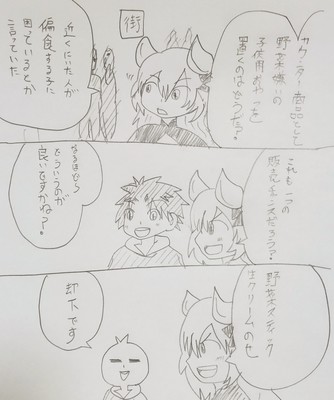 サク・ター商品として
野菜嫌いの
子供用おやつを
置くのはどうだろ?
街
近くにいた人が
偏食する子に
困っているとか
言っていた
これも一つの
販売チャンスだろう?
なるほど
どういうのが
良いですかね?
野菜スティック
生クリームのせ
却下です